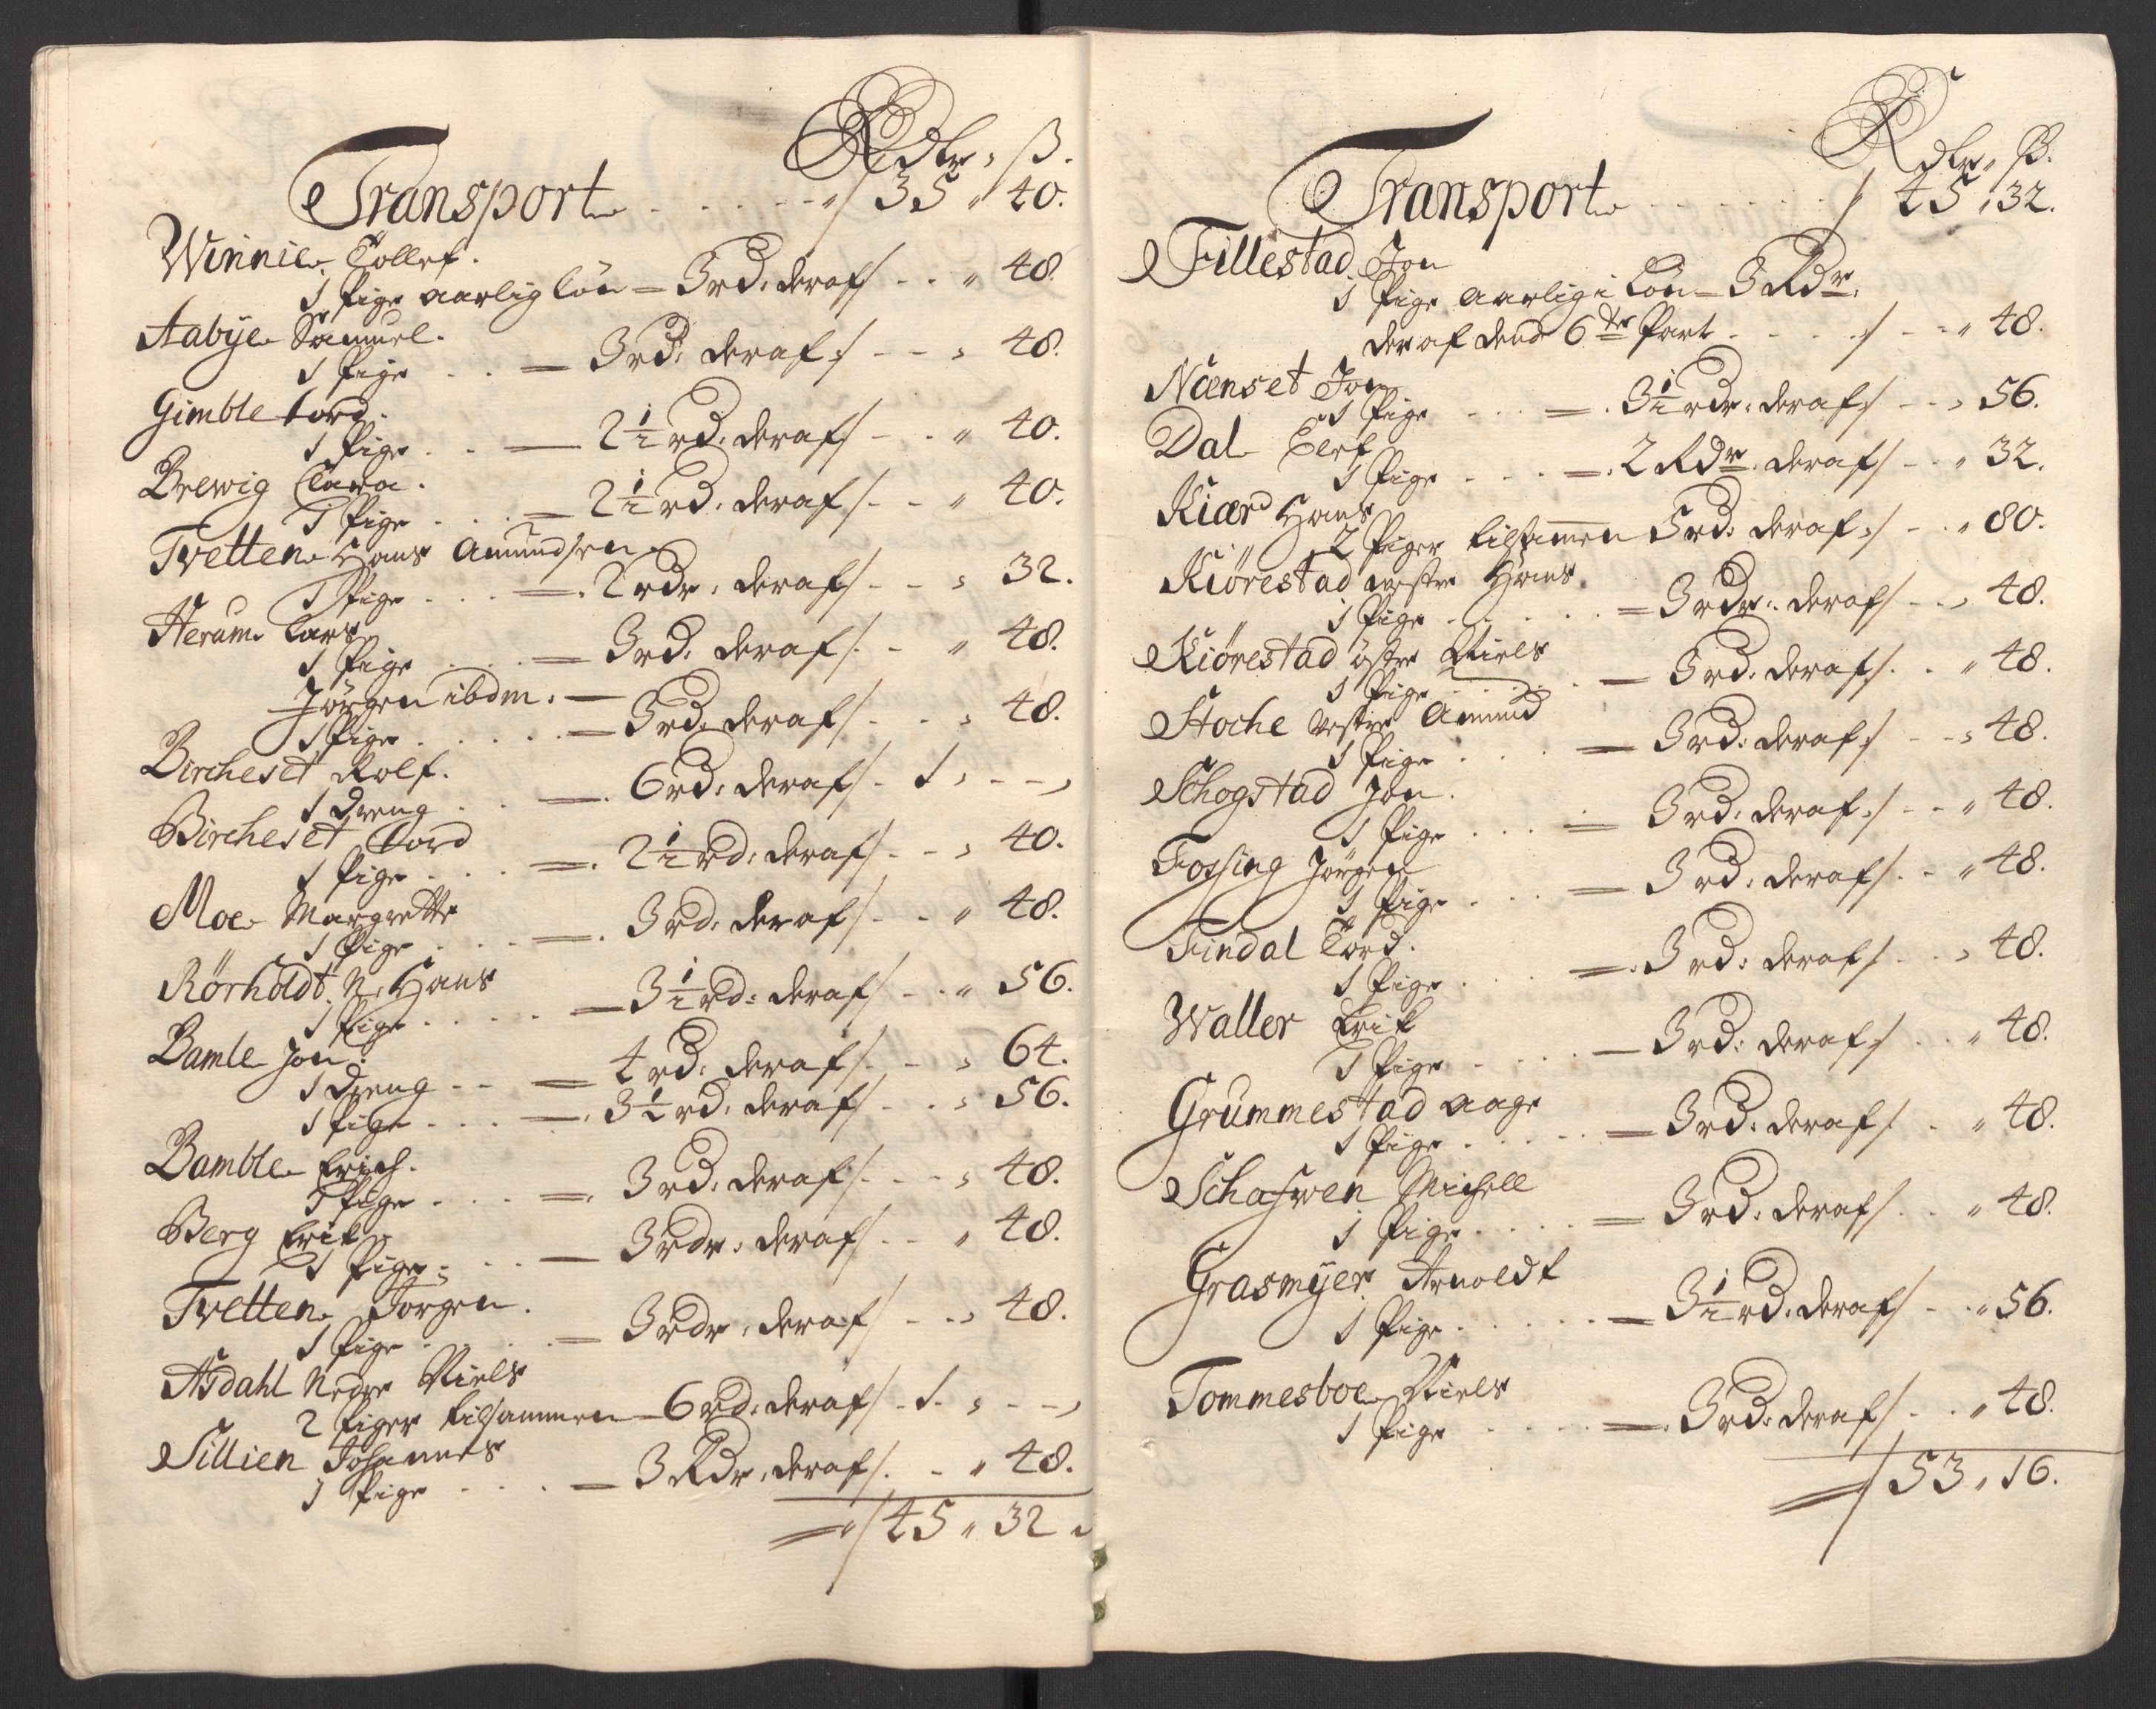 Rdlr , ß.
Transport - - - - - - „ / 35 „ 40.
Winnie Tollef.
1 Pige aarlig Lön = 3rd: deraf / - - „ 48.
Aabÿe Samuel.
1 Pige - - = 3rd: deraf / - - , 48.
Gimble tord.
1 Pige - - = 2 1/2 rd: deraf / - - „ 40.
Brewig Clara.
1 Pige - - - = 2 1/2 rd: deraf / - - „ 40.
Tvetten Hans Amundsen
1 Pige - - - = . 2 rdr: deraf / - - , 32.
Herum Lars
1 Pige - - - = 3rd: deraf / - - „ 48.
Jörgen ibdm. -
1 Pige - - - - = 3rd: deraf / - - , 48.
Bircheset Rolf.
1 dreng - - = . 6rd: deraf / - 1 , - - ,
Bircheset Tord
1 Pige - - - = . 2 1/2 rd: deraf / - - , 40.
Moe Margrette
1 Pige - - - = . 3rd: deraf / - - „ 48.
Rörholdt N: Hans
1 Pige - - - - = 3 1/2 rd: deraf / - - „ 56.
Bamle Jon:
1 dreng - - = 4rd: deraf / - - , 64.
1 Pige - - - = . 3 1/2 rd: deraf / - - , 56.
Bamble Erich.
1 Pige - - - = . 3rd: deraf / - - - , 48.
Berg Erik
1 Pige - - - = 3rdr: deraf / - - , 48.
Tvetten Jörgen.
1 Pige - - - = 3rdr: deraf / - - , 48.
Asdahl Nedre Niels
2 Piger tilsammen - 6rd: deraf / - 1 , - - ,
Sillien Johannes
1 Pige - - - = 3 Rdr: deraf / - - „ 48.
= „ / 45 „ 32 „
Rdlr „ ß.
Transport - - - - - - - / 45 , 32.
Fillestad Jon
1 Pige aarlig i Lön - 3 Rdr.
deraf dend 6te Part - - - - / - - „ 48.
Nænset Jon
1 Pige - - - = . 3 1/2 rdr: deraf / - - , 56.
Dal Elef
1 Pige - - - = . 2 Rdr: deraf / - - „ 32.
Kiærd Hans
2 Piger tilsamen 5rd: deraf / - - „ 80.
Kiörestad westre Hans
1 Pige - - - - = 3rdr: deraf / - - , 48.
Kiörestad östre Niels
1 Pige - - - - = 3rd: deraf / - - „ 48.
Stoche vestre Amund
1 Pige - - - = 3rd: deraf / - - , 48.
Schogstad Jon.
1 Pige - - - = 3rd: deraf / - - „ 48.
Fossing Jörgen
1 Pige - - - = 3rd: deraf / - - „ 48.
Findal Tord.
1 Pige - - - = . 3rd: deraf / - - , 48.
Waller Erik
1 Pige - - - - = 3rd: deraf / - - „ 48.
Grummestad aage
1 Pige - - - - = 3rd: deraf / - - „ 48.
Schafwen Michell
1 Pige - - - - = 3rd: deraf / - - „ 48.
Grasmÿer Arnoldt
1 Pige - - - - - = 3 1/2 rd: deraf / - - „ 56.
Tommesboe Niels
1 Pige - - - - = . 3rd: deraf / - - „ 48.
= / 53 „ 16.